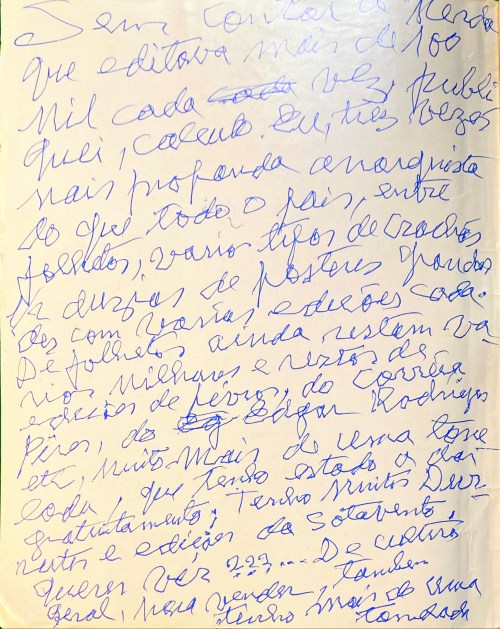 Sem contar a Merda
que editava mais de 100
mil cada vez, publi
quei, calculo eu, tres vezes
mais propanda anarquista
do que todo o pais, entre
folhetos, varios tipos de crachás
duzias de posteres grandes
des com varias edições cada.
De folhetos ainda restam va-
rios milhares e restos de
edições de livros, do Corrêa
Pires, do Edgar Rodrigos
etc, muito mais de uma tone
lada, que tenho estado a dar
gratuitamente; Tenho muitos
e edições da Sotavento,
queres ver ???... De cultura
geral, para vender, tambem
tenho mais de uma
tonelada